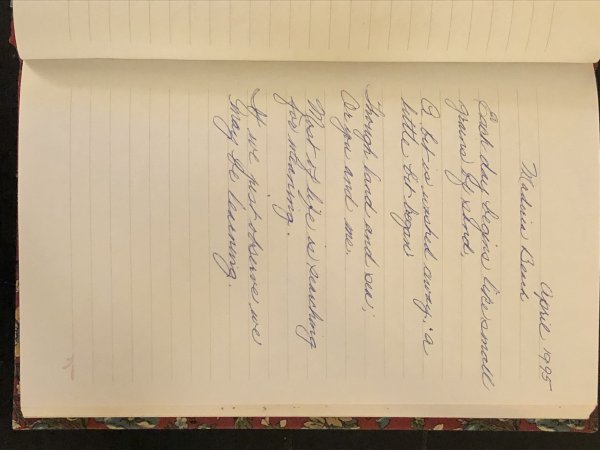 April 1995
Maderia Beach
Each day begins like small
grains of sand,
A bit is washed away; a
little bit began
Though land and sea;
Or you and me.
Most of life is searching
for meaning.
If we just observe we
may be learning.